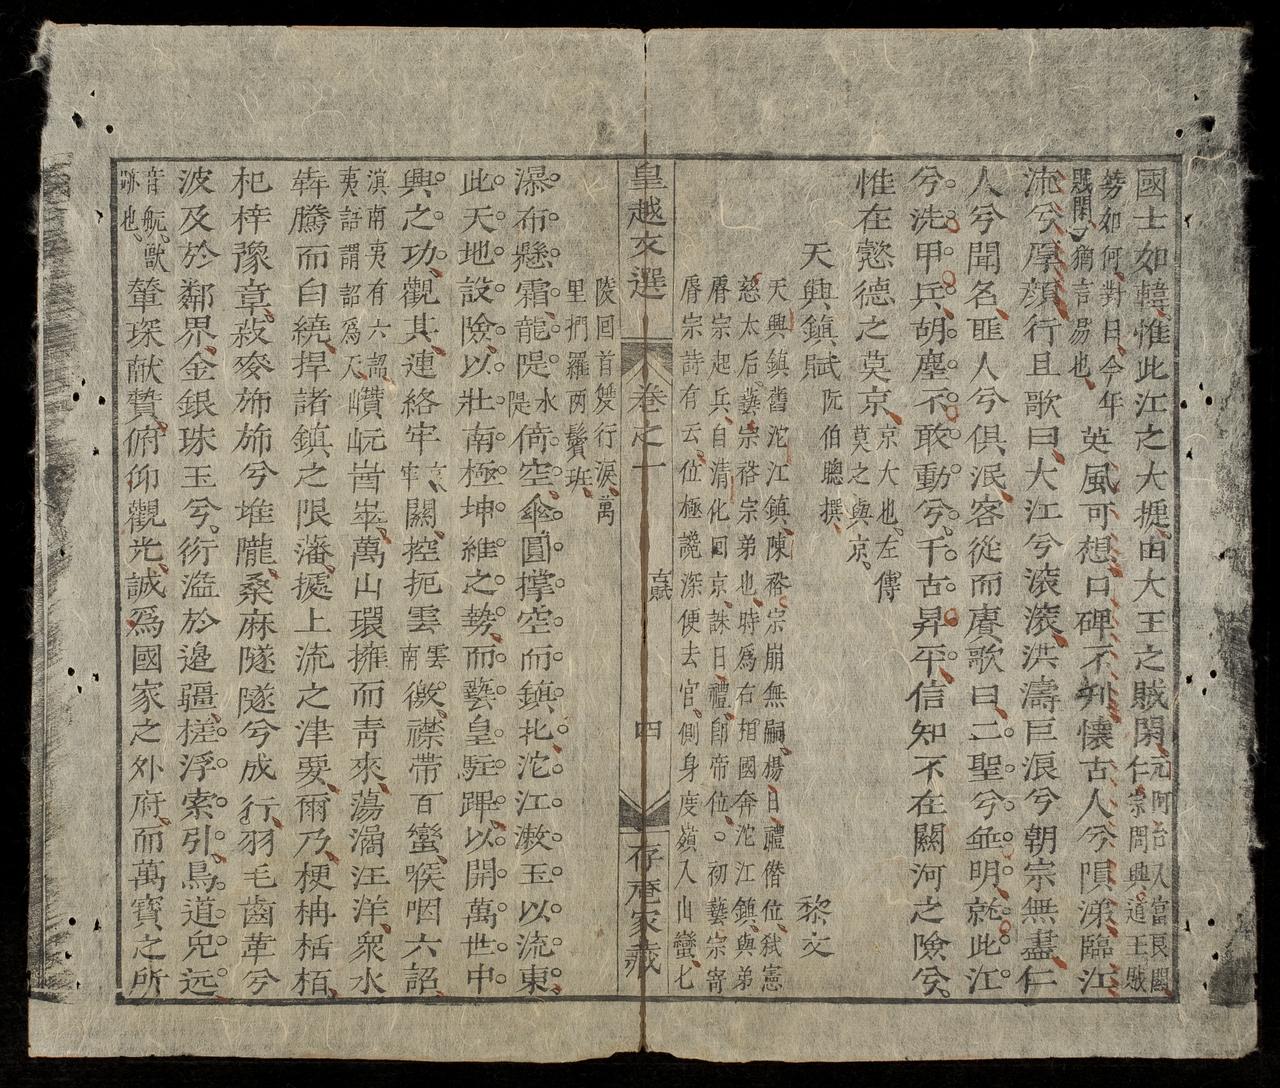 國士如韓惟此江之大捷由大王之賊閑元阿台入富良關仁宗問興道王賊
勢如何對曰今年賊閑閑猶言易也英風可想口碑不刋懷古人兮隕涕臨江
流兮厚顔行且歌曰大江兮滾滾洪濤巨浪兮朝宗無盡仁
人兮聞名匪人兮俱泯客從而賡歌曰二聖兮並明就此江
兮洗甲兵胡塵不敢動兮千古昇平信知不在關河之險兮
惟在懿德之莫京京大也左傳莫之與京
天興鎮賦阮伯聰撰 黎文
天興鎮舊沱江鎮陳裕宗崩無嗣楊日禮僭位弑憲
慈太后藝宗裕宗弟也時爲右相國奔沱江鎮與弟
睿宗起兵自清化回京誅日禮卽帝位○初藝宗寄
睿宗詩有云位極讒深便去官側身度嶺入山蠻七
皇越文選 卷之一 古賦 四 存庵家藏
陵回首雙行淚萬
里捫羅兩鬢班
瀑布懸霜龍隄水隄倚空傘圓撐空而鎮北沱江漱玉以流東
此天地設險以壯南極坤維之勢而藝皇駐蹕以開萬世中
興之功觀其連絡牢牢關控扼雲雲南徼襟帶百蠻喉咽六詔
滇南夷有六詔夷語謂詔爲天巑岏崮崒萬山環擁而靑來蕩潏汪洋衆水
犇騰而白繞捍諸鎮之限藩據上流之津要爾乃梗柟栝栢
杞梓豫章菽麥斾斾兮堆隴桑麻隧隧兮成行羽毛齒革兮
波及於鄰界金銀珠玉兮衍濫於邊疆槎浮索引鳥道兕远
音航獸跡也輦琛献贄俯仰觀光誠爲國家之外府而萬寶之所